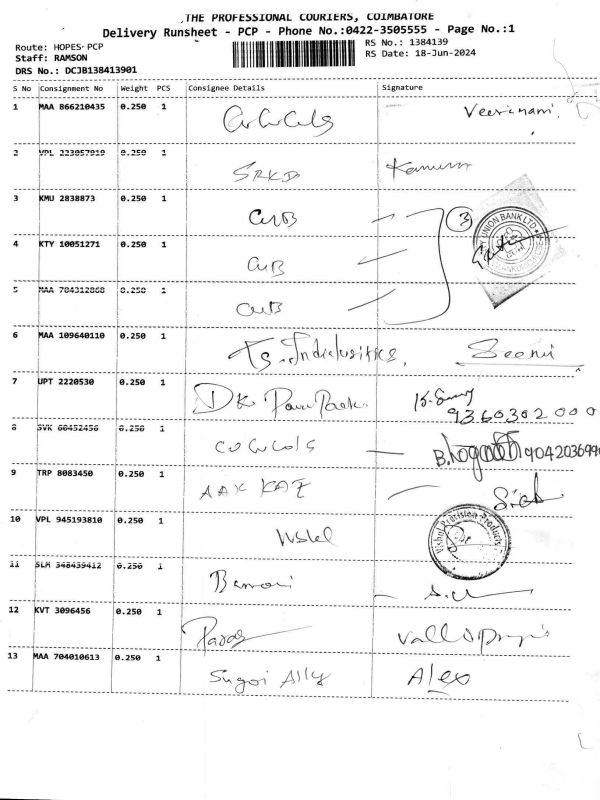 THE PROFESSIONAL COURIERS, COIMBATORE
Delivery Runsheet - PCP - Phone No.:0422-3505555 - Page No.:1
Route: HOPES PCP
RS No.: 1384139
Staff: RAMSON
RS Date: 18-Jun-2024
DRS No.: DCJB138413901
S No Consignment No Weight PCS Consignee Details Signature
1 MAA 866210435 0.250 1 Veeramani.
2 VPL 223057919 0.250 1 SRKD
3 KMU 2838873 0.250 1 CUB 3
4 KTY 10051271 0.250 1 CUB
5 MAA 704312868 0.250 1 CUB
UNION BANK LTD
6 MAA 109640110 0.250 1 Ts. Seeni
7 UPT 2220530 0.250 1 DK
9360302000
8 SVK 60452456 0.250 1
9 TRP 8083450 0.250 1
10 VPL 945193810 0.250 1
Vishal Precision Products
11 SLM 348439412 0.250 1
12 KVT 3096456 0.250 1
13 MAA 704010613 0.250 1 Sugoi Ally Alex